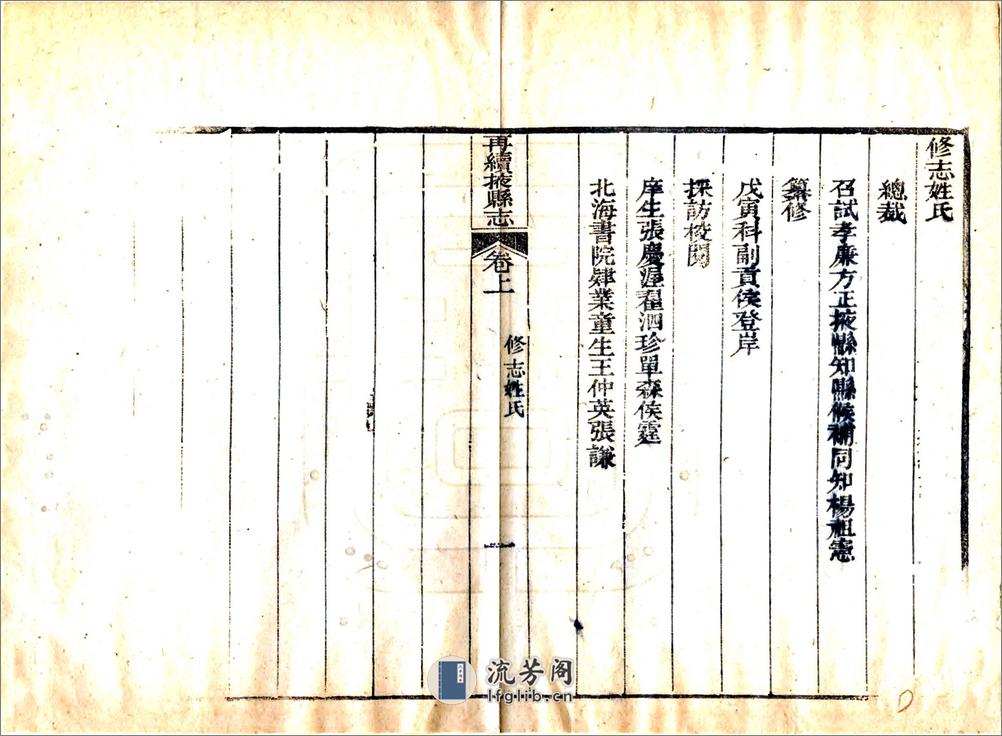 修志姓氏
總裁
召試孝廉方正掖縣知縣候補同知楊祖憲
纂修
戊寅科副貢侯登岸
採訪校閱
庠生張慶渥翟泗珍單森侯霆
北海書院肄業童生王仲英張謙
再續掖縣志
卷上
修志姓氏
一
流芳阁
lfglib.cn